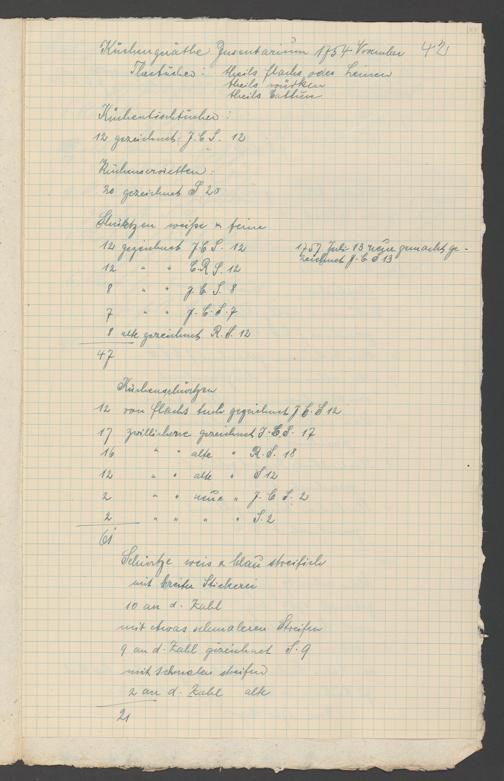 Küchengeräthe Inventarium 1754 November 42
theils flachs, oder Leinen
theils
theils Cattun
Küchentischtücher:
12 gezeichnet J. C. S. 12
Küchenservietten:
20 gezeichnet S 20
Schürtzen weiße & feine
12 gezeichnet J. C. S. 12
1757 Juli 13 neue gemacht ge-
zeichnet J. C. S 13
12 " " C. R. S. 12
8 " " J. C. S. 8
7 " " J. C. S. 7
8 alte gezeichnet R. S. 12
47
Küchenschürtzen
12 von flachs tuch gezeichnet J. C. S 12
17 zwillichene gezeichnet J. C. S. 17
16 " " alte " R. S. 18
12 " " alte " S 12
2 " " neue " J. C. S. 2
2 " " " " S. 2
61
Schürtze weis & blau streifich
mit breiter Stickerei
10 an d. Zahl
mit etwas schmaleren Streifen
9 an d. Zahl gezeichnet S. 9
mit schmalen streifen
2 an d. Zahl alte
21